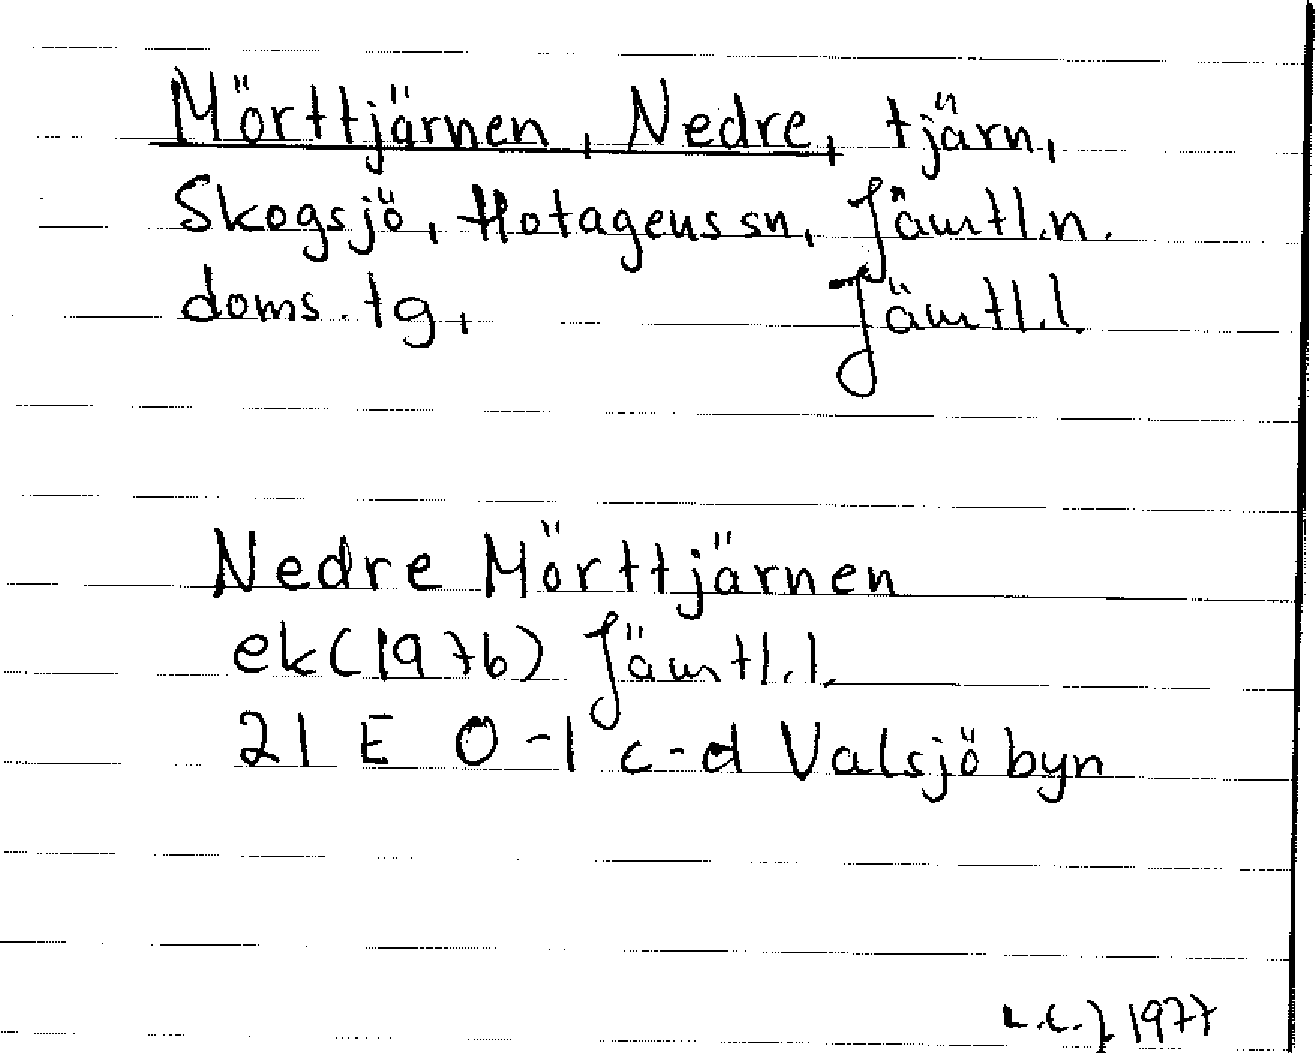 Mörttjärnen, Nedre, tjärn,
Skogsjö, Hotagens sn, Jämtl.n.
doms.tg, Jämtl.l.
Nedre Mörttjärnen
ek(1976) Jämtl.l.
21 E 0-1 c-d Valsjöbyn
1977